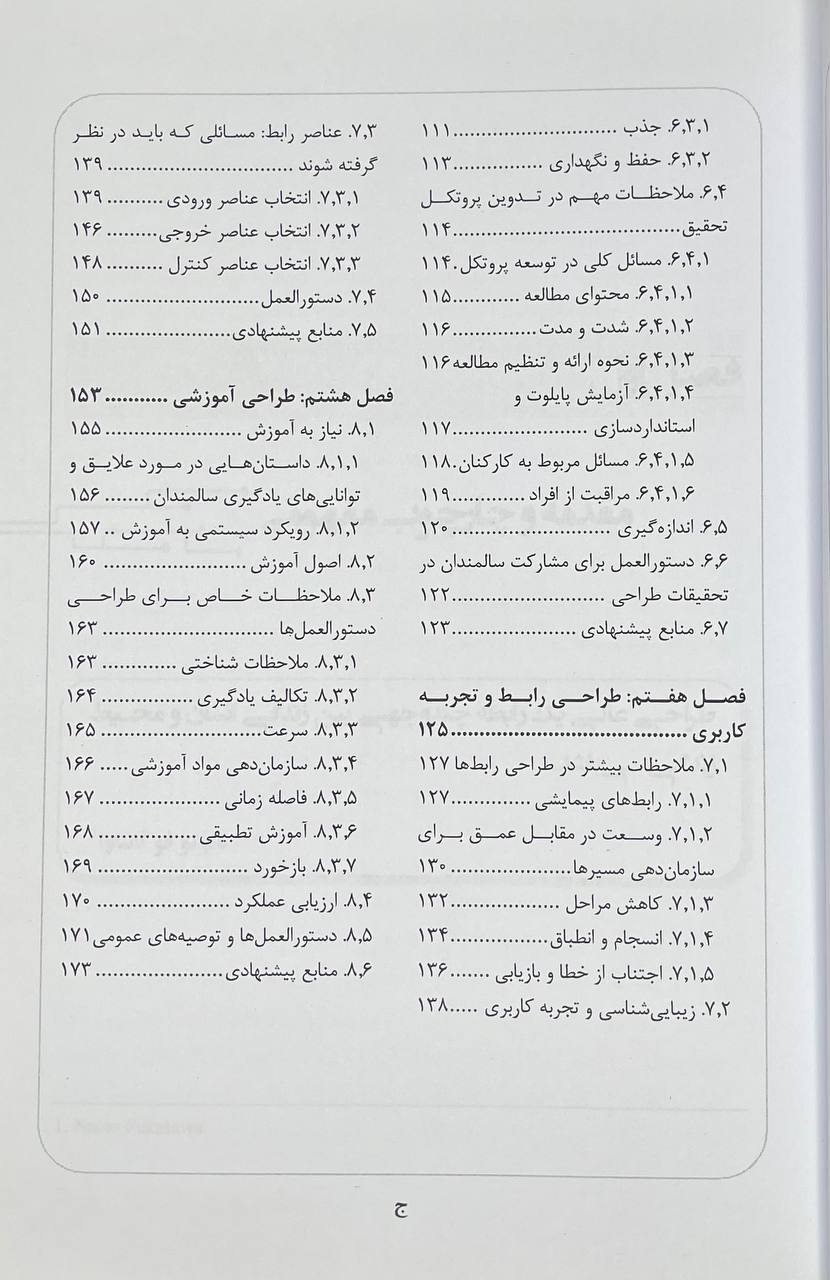 ۶,۳,۱. جذب ............................۱۱۱
۶,۳,۲. حفظ و نگهداری ................۱۱۳
۶,۴. ملاحظــات مهــم در تــدوین پروتکــل
تحقیق.......................................۱۱۴
۶,۴,۱. مسائل کلی در توسعه پروتکل.۱۱۴
۶,۴,۱,۱. محتوای مطالعه ............۱۱۵
۶,۴,۱,۲. شدت و مدت...............۱۱۶
۶,۴,۱,۳. نحوه ارائه و تنظیم مطالعه۱۱۶
۶,۴,۱,۴. آزمایش پایلوت و
استانداردسازی ........................۱۱۷
۶,۴,۱,۵. مسائل مربوط به کارکنان.۱۱۸
۶,۴,۱,۶. مراقبت از افراد.............۱۱۹
۶,۵. اندازه‌گیری ............................۱۲۰
۶,۶. دستورالعمل برای مشارکت سالمندان در
تحقیقات طراحی ...........................۱۲۲
۶,۷. منابع پیشنهادی ......................۱۲۳
فصــل هفــتم: طراحــی رابــط و تجربــه
کاربری ...........................................۱۲۵
۷,۱. ملاحظات بیشتر در طراحی رابط‌ها ۱۲۷
۷,۱,۱. رابط‌های پیمایشی ..............۱۲۷
۷,۱,۲. وســعت در مقابــل عمــق بــرای
سازمان‌دهی مسیرها......................۱۳۰
۷,۱,۳. کاهش مراحل ...................۱۳۲
۷,۱,۴. انسجام و انطباق.................۱۳۴
۷,۱,۵. اجتناب از خطا و بازیابی .......۱۳۶
۷,۲. زیبایی‌شناسی و تجربه کاربری .....۱۳۸
۷,۳. عناصر رابط: مسـائلی کـه بایـد در نظـر
گرفته شوند ..................................۱۳۹
۷,۳,۱. انتخاب عناصر ورودی ..........۱۳۹
۷,۳,۲. انتخاب عناصر خروجی.........۱۴۶
۷,۳,۳. انتخاب عناصر کنترل ..........۱۴۸
۷,۴. دستورالعمل............................۱۵۰
۷,۵. منابع پیشنهادی.......................۱۵۱
فصل هشتم: طراحی آموزشی ...........۱۵۳
۸,۱. نیاز به آموزش .........................۱۵۵
۸,۱,۱. داسـتان‌هـایی در مـورد علایـق و
توانایی‌های یادگیری سالمندان ........۱۵۶
۸,۱,۲. رویکرد سیستمی به آموزش ..۱۵۷
۸,۲. اصول آموزش ..........................۱۶۰
۸,۳. ملاحظــات خــاص بــرای طراحــی
دستورالعمل‌ها ...............................۱۶۳
۸,۳,۱. ملاحظات شناختی ..............۱۶۳
۸,۳,۲. تکالیف یادگیری ................۱۶۴
۸,۳,۳. سرعت.............................۱۶۵
۸,۳,۴. سازمان‌دهی مواد آموزشی .....۱۶۶
۸,۳,۵. فاصله زمانی ......................۱۶۷
۸,۳,۶. آموزش تطبیقی..................۱۶۸
۸,۳,۷. بازخورد ...........................۱۶۹
۸,۴. ارزیابی عملکرد ........................۱۷۰
۸,۵. دستورالعمل‌ها و توصیه‌های عمومی۱۷۱
۸,۶. منابع پیشنهادی.......................۱۷۳
ج